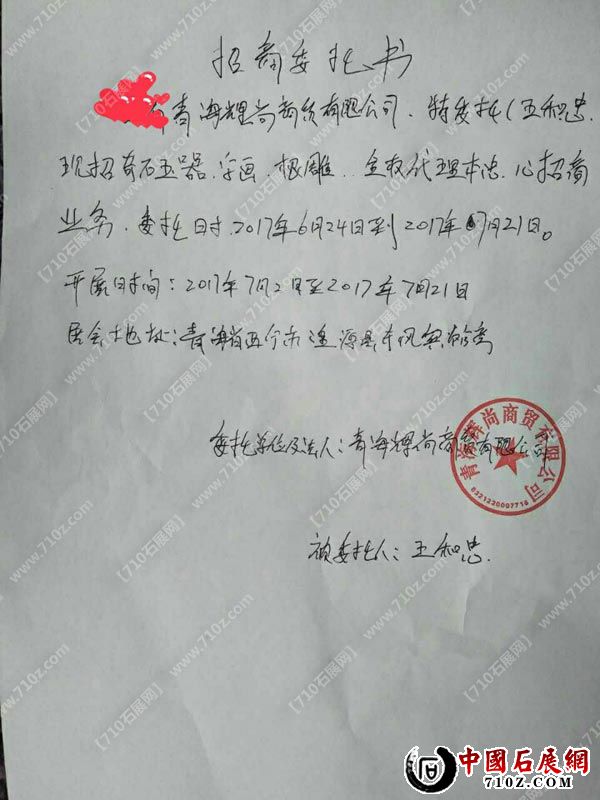 招商委托书
青海辉尚商贸有限公司。特委托(王和忠
现招奇石玉器、字画、根雕、全权代理本中心招商
业务。委托日时2017年6月24日到2017年7月21日。
开展日时间:2017年7月2日至2017年7月21日
展会地址:青海省西宁市湟源县
委托单位及法人:青海辉尚商贸有限公司
青海辉尚商贸有限公司
6321220007716
被委托人:王和忠
【710石展网】www.710z.com
中國石展網
710Z.COM